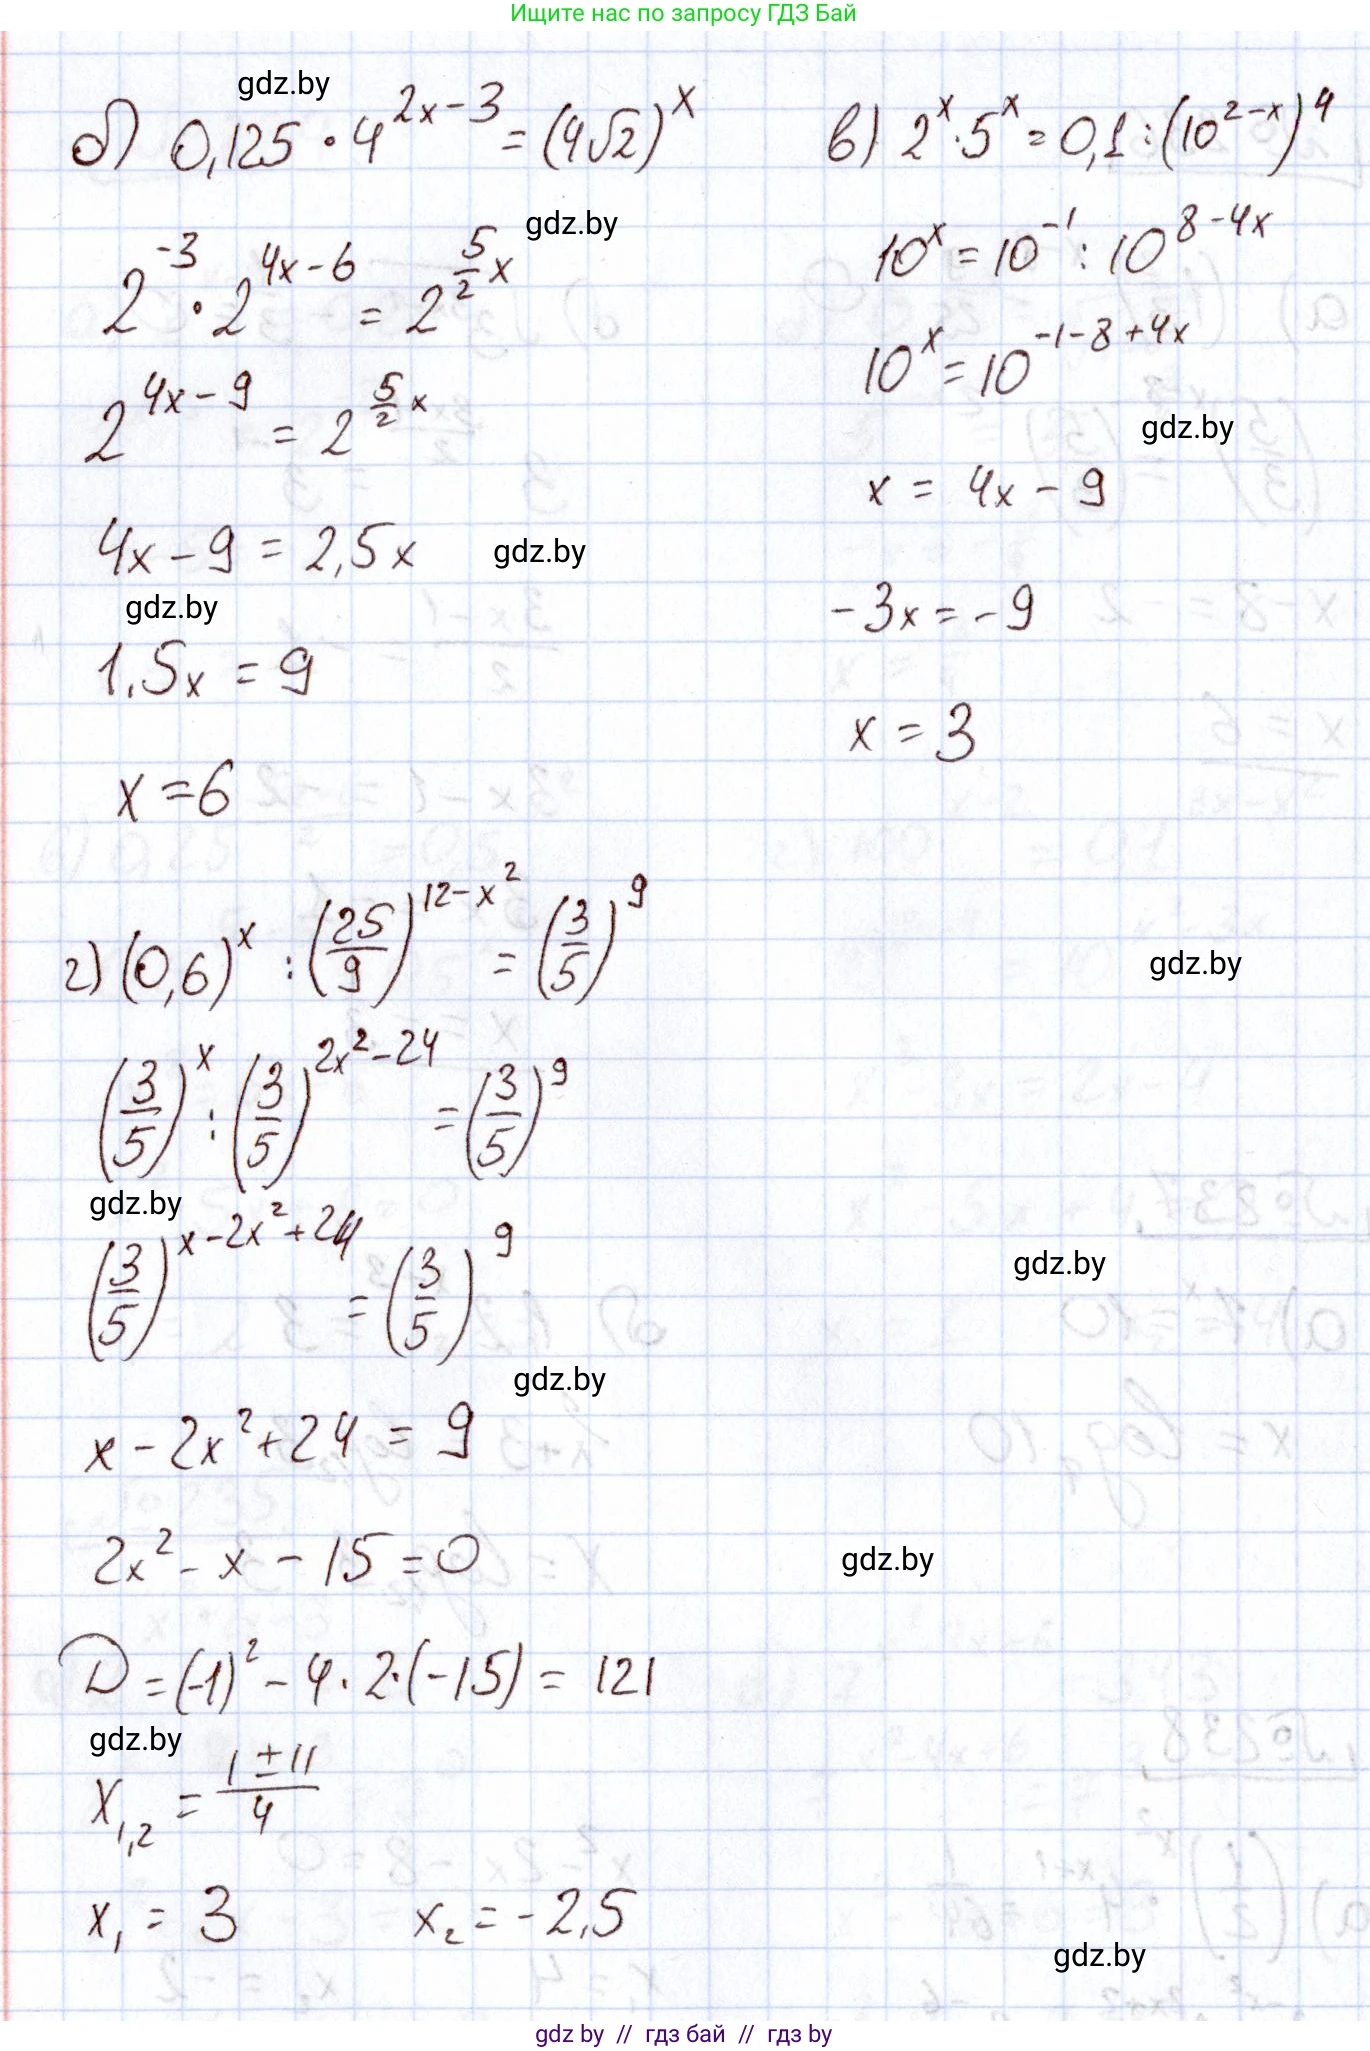 Ищите нас по запросу ГДЗ Бай
gdz.by
б) 0,125 · 4^(2x-3) = (4√2)^x
gdz.by
2^(-3) · 2^(4x-6) = 2^(5/2 x)
2^(4x-9) = 2^(5/2 x)
4x - 9 = 2,5x
gdz.by
gdz.by
1,5x = 9
x = 6
в) 2^x · 5^x = 0,1 : (10^(2-x))^4
10^x = 10^(-1) : 10^(8-4x)
10^x = 10^(-1-8+4x)
gdz.by
x = 4x - 9
-3x = -9
x = 3
г) (0,6)^x : (25/9)^(12-x²) = (3/5)^9
gdz.by
(3/5)^x : (3/5)^(2x²-24) = (3/5)^9
gdz.by
(3/5)^(x-2x²+24) = (3/5)^9
gdz.by
gdz.by
x - 2x² + 24 = 9
2x² - x - 15 = 0
gdz.by
D = (-1)² - 4 · 2 · (-15) = 121
gdz.by
x₁,₂ = (1 ± 11)/4
x₁ = 3 x₂ = -2,5
gdz.by
gdz by // гдз бай // gdz by